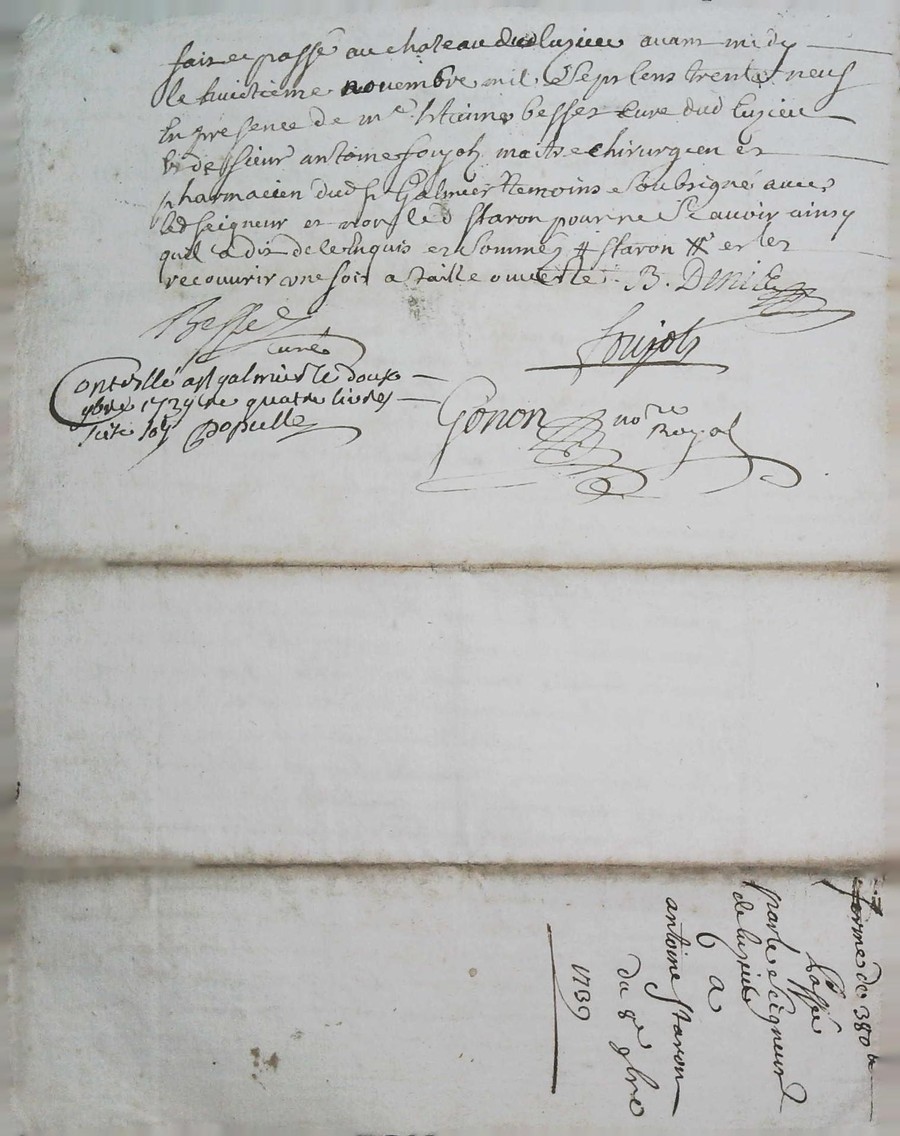 fait et passé au chateau dud luzieu avant midy
le huictieme novembre mil sept cens trente neuf
En presence de me Etienne besset Curé dud luzieu
et de sieur antoine soujols maitre chirurgien et
pharmacien dud st Galmier temoins soubsigné avec
led seigneur et non led staron pour ne scavoir ainsy
quil a dit de ce Enquis et sommé staron et les
recouvrir une fois a taille ouverte. B. Denis
Besset
curé
Soujols
Controllé a st galmier le douze
9bre 1739 re quatre livres
seize
Gonon nore
Royal
ferme de 380 tt
Passé
par le seigneur
de luzieu
a
antoine staron
du 8e 9bre
1739